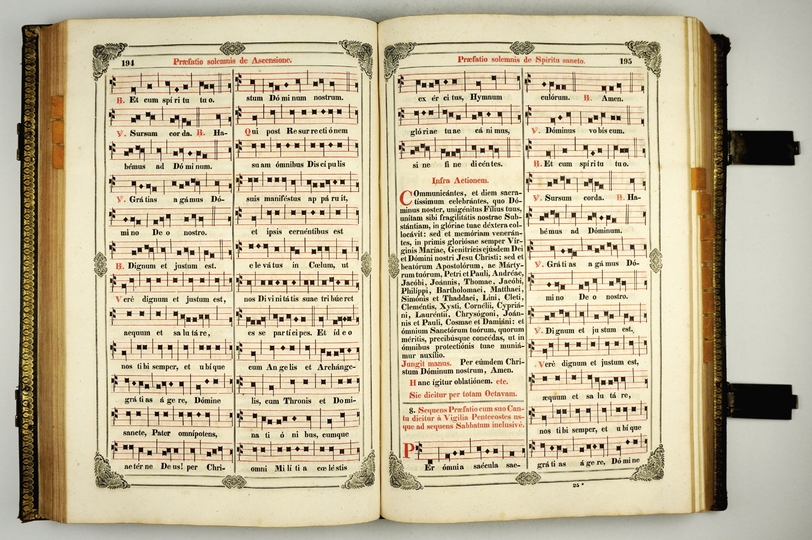 194 Præfatio solemnis de Ascensione.
℟. Et cum spi ri tu tu o.
℣. Sursum cor da. ℟. Ha-
bémus ad Dó mi num.
℣. Grá tias a gá mus Dó-
mi no De o nostro.
℟. Dignum et justum est.
Veré dignum et justum est,
aequum et sa lu tá re,
nos ti bi semper, et u bí que
grá ti as á ge re, Dómine
sancte, Pater omnípotens,
ae tér ne De us! per Chri-
stum Dó mi num nostrum.
Qui post Re sur re cti ó nem
su am ómnibus Dis cí pu lis
suis maniféstus ap pá ru it,
et ipsis cernéntibus est
e le vá tus in Cœlum, ut
nos Di vi ni tá tis suae tri bú e ret
es se par tí ci pes. Et íd e o
cum An ge lis et Archánge-
lis, cum Thronis et Do mi-
na ti ó ni bus, cumque
omni Mi lí ti a cœ lé stis
Præfatio solemnis de Spiritu sancto. 195
ex ér ci tus, Hymnum
gló ri ae tu ae cá ni mus,
si ne fi ne di cén tes.
Infra Actionem.
COmmunicántes, et diem sacra-
tíssimum celebrántes, quo Dó-
minus noster, unigénitus Fílius tuus,
unítam sibi fragilitátis nostrae Sub-
stántiam, in glóriae tuae déxtera col-
locávit: sed et memóriam venerán-
tes, in primis gloriósae semper Vír-
ginis Maríae, Genitrícis ejúsdem Dei
et Dómini nostri Jesu Christi: sed et
beatórum Apostolórum, ac Márty-
rum tuórum, Petri et Pauli, Andréae,
Jacóbi, Joánnis, Thomae, Jacóbi,
Philíppi, Bartholomaei, Matthaei,
Simónis et Thaddaei, Lini, Cleti,
Cleméntis, Xysti, Cornélii, Cypriá-
ni, Lauréntii, Chrysógoni, Joán-
nis et Pauli, Cosmae et Damiáni: et
ómnium Sanctórum tuórum, quorum
méritis, precibúsque concédas, ut in
ómnibus protectiónis tuae muniá-
mur auxílio.
Jungit manus. Per eúmdem Chri-
stum Dóminum nostrum, Amen.
Hanc igitur oblatiónem. etc.
Sic dicitur per totam Octavam.
8. Sequens Præfatio cum suo Can-
tu dicitur à Vigilia Pentecostes us-
que ad sequens Sabbatum inclusivè.
PEr ómni a saécula sae-
culórum. ℟. Amen.
℣. Dóminus vo bís cum.
℟. Et cum spí rí tu tu o.
℣. Sursum corda. ℟. Ha-
bé mus ad Dóminum.
℣. Grá ti as a gá mus Dó-
mi no De o nostro.
℣. Di gnum et ju stum est,
Veré dignum et justum est,
æquum et sa lu tá re,
nos ti bi semper, et u bí que
grá ti as á ge re, Dó mi ne
25 *